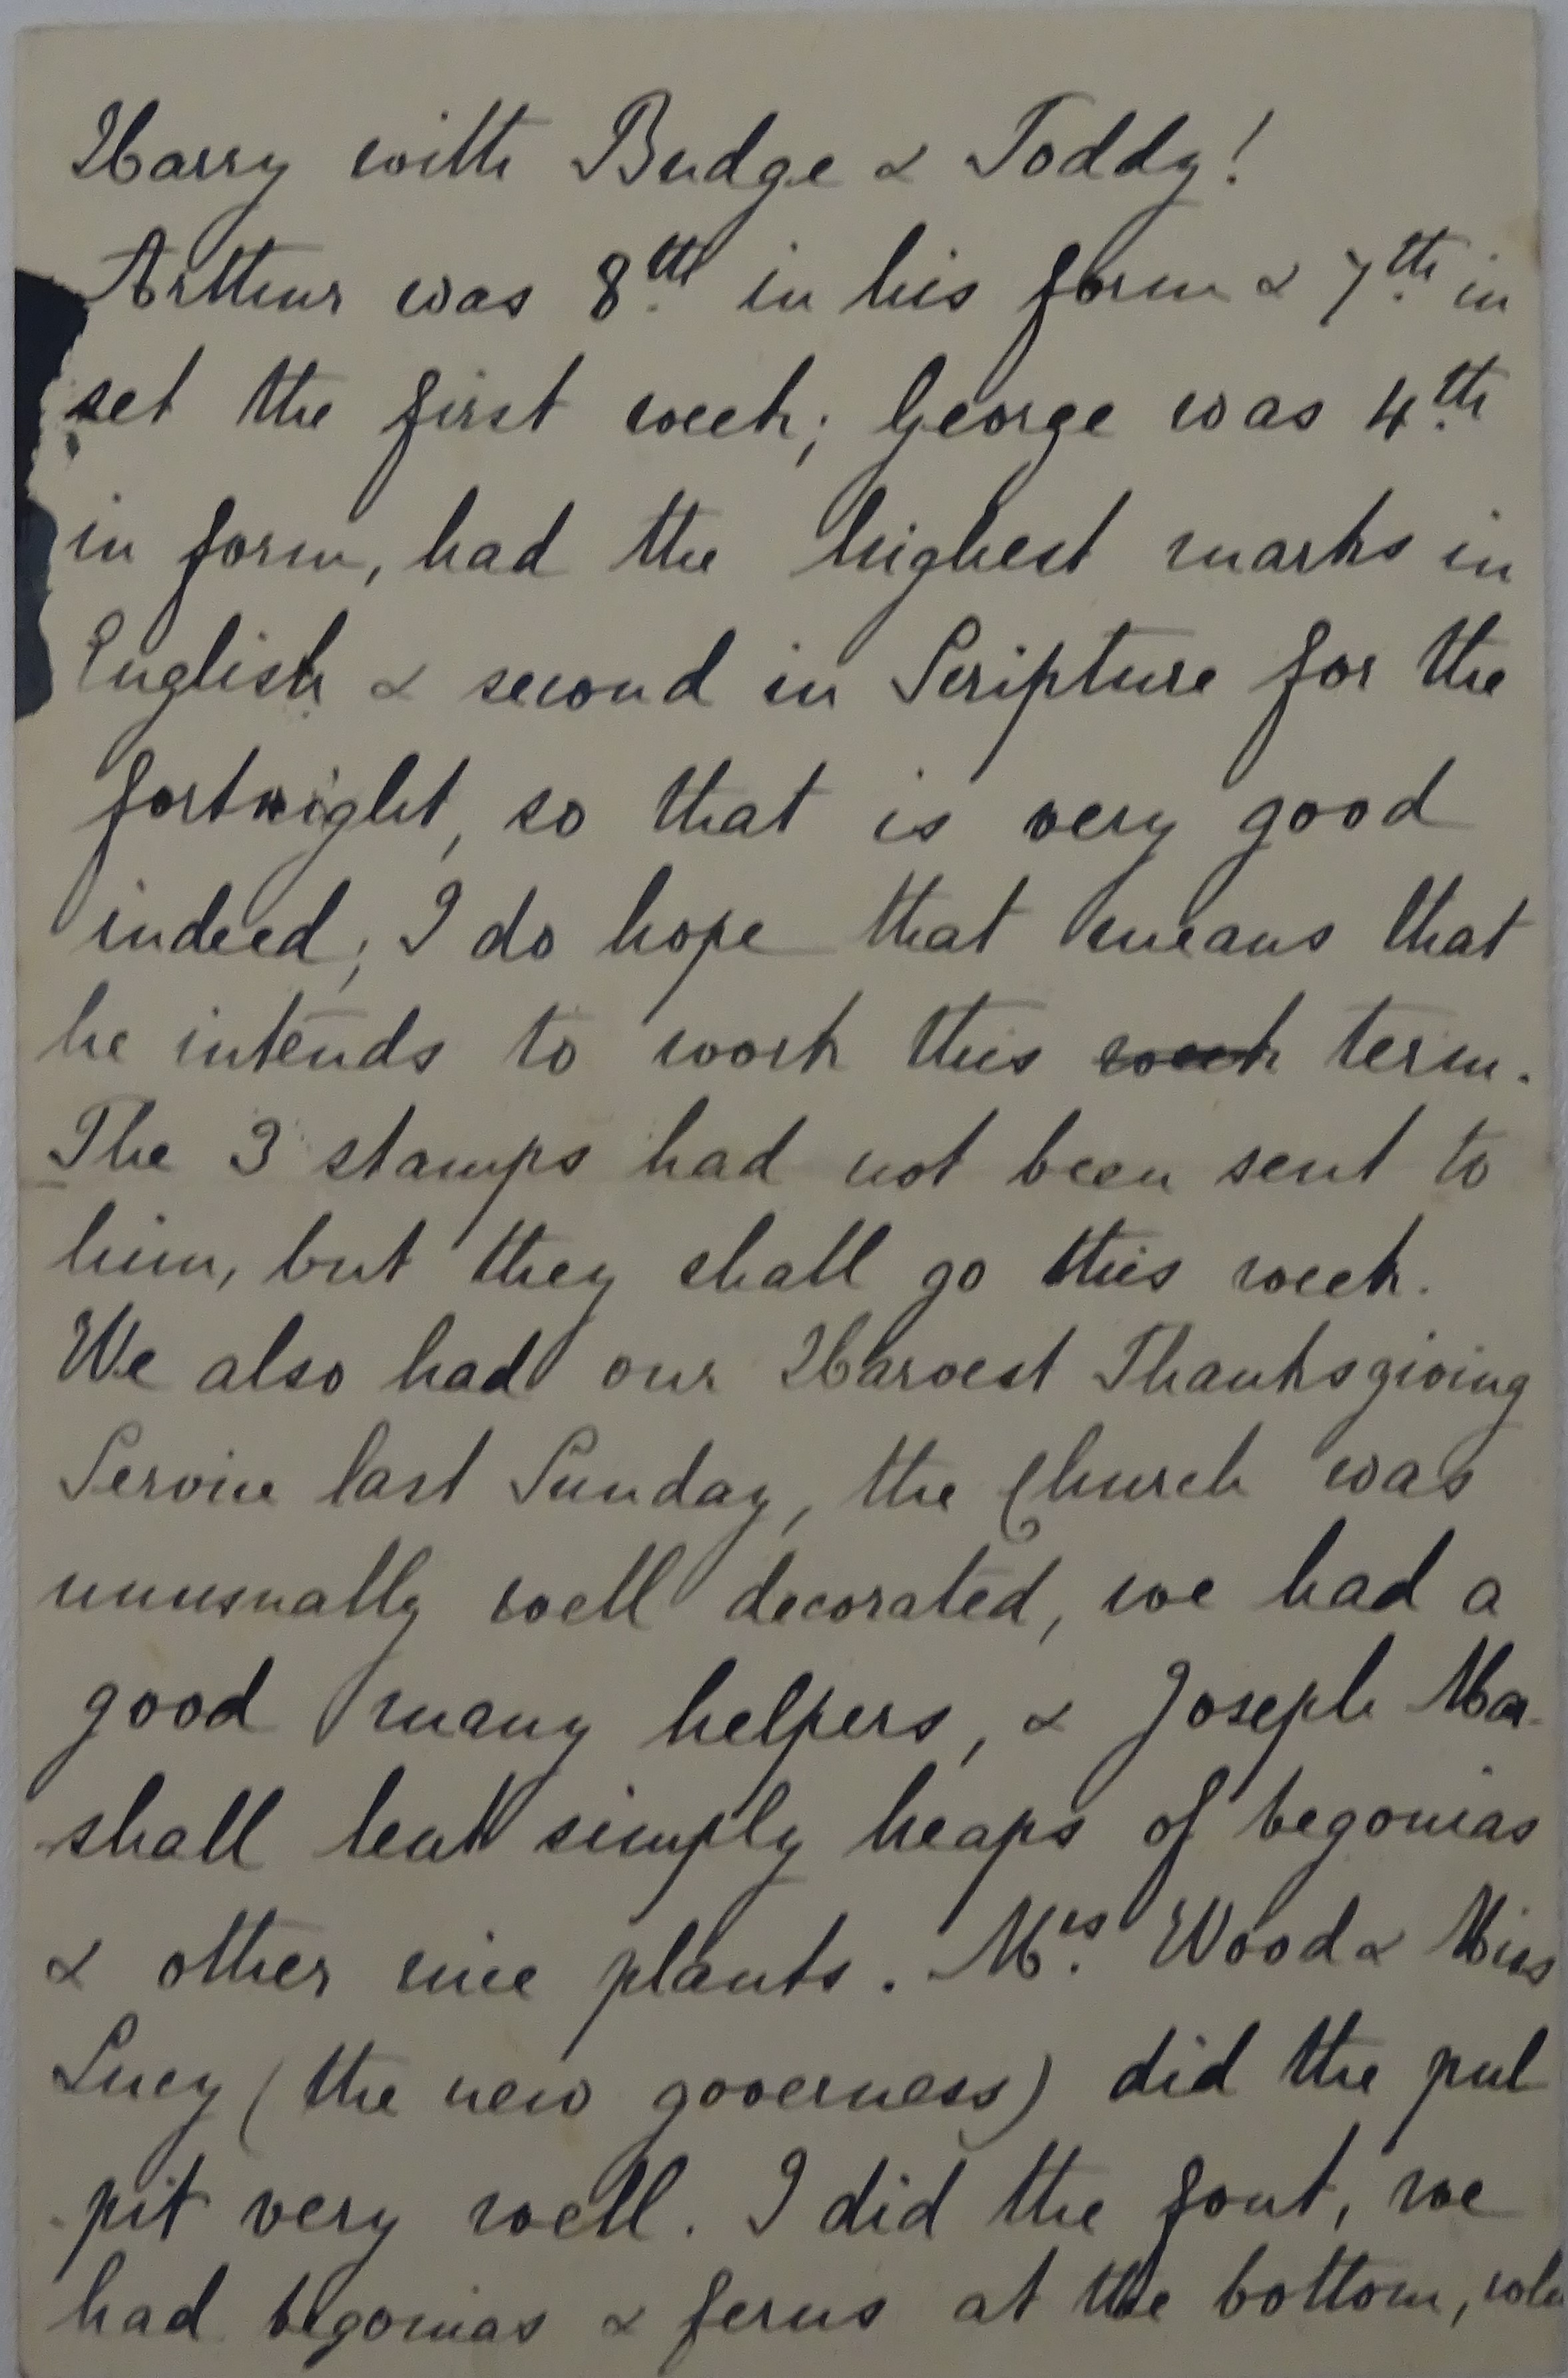 Harry with Budge & Toddy!
Arthur was 8th in his form & 7th in
set the first week; George was 4th
in form, had the highest marks in
English & second in Scripture for the
fortnight, so that is very good
indeed; I do hope that means that
he intends to work this week term.
The 3 stamps had not been sent to
him, but they shall go this week.
We also had our Harvest Thanksgiving
Service last Sunday, the Church was
unusually well decorated, we had a
good many helpers, & Joseph Mar-
shall lent simply heaps of begonias
& other nice plants. Mrs. Wood & Miss
Lucy (the new governess) did the pul
pit very well. I did the font, we
had begonias & ferns at the bottom,